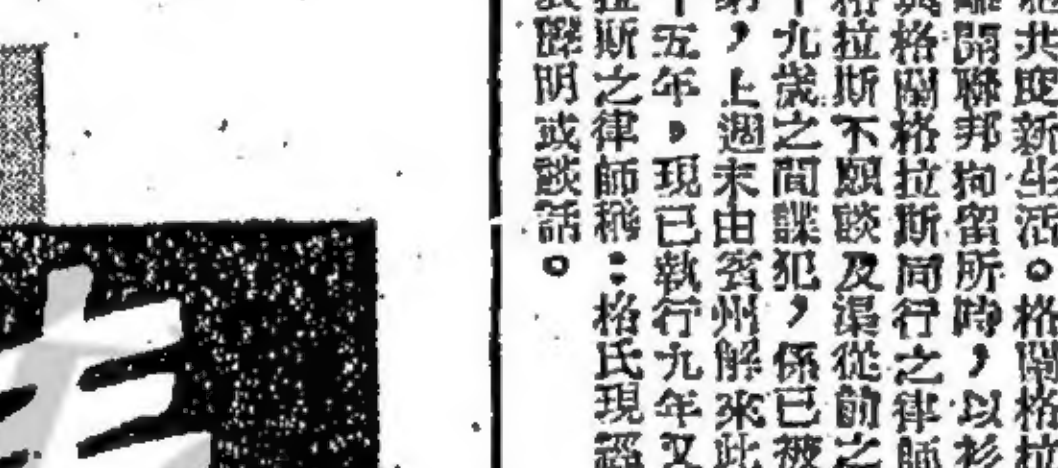 共度新生活。格闌格拉
離開聯邦拘留所時，以衫
與格闌格拉斯同行之律師
格拉斯不願談及渠從前之
十九歲之間諜犯，係已被
，上週末由賓州解來此
十五年，現已執行九年又
拉斯之律師稱：格氏現經
表聲明或談話。